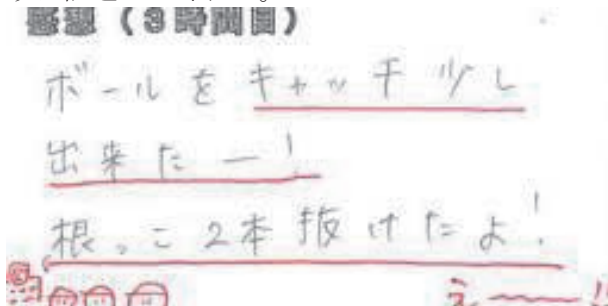 感想（3時間目）
ボールをキャッチ少し
出来たー！
根っこ2本抜けたよ！
え～～!!